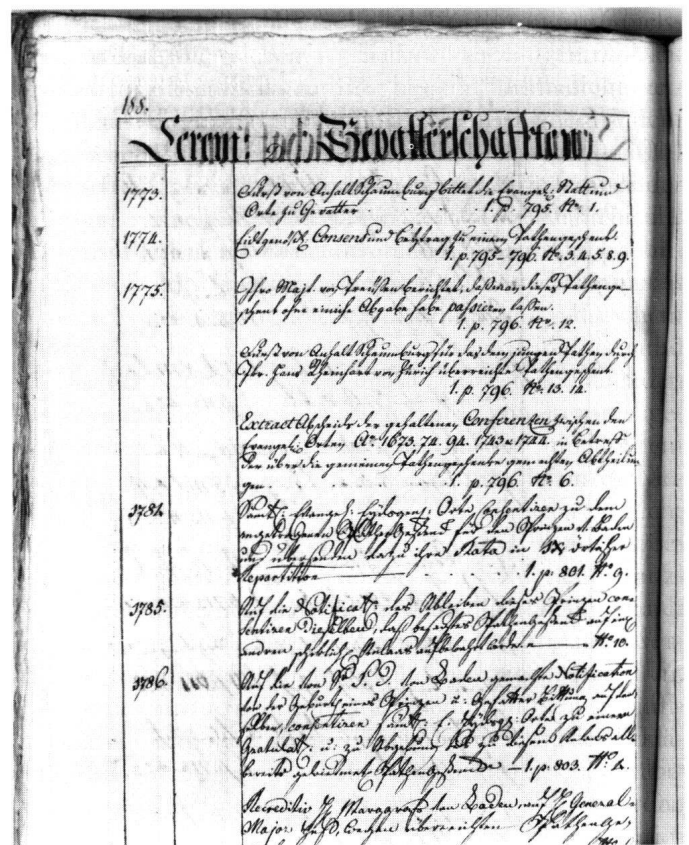 188.
Cerem: Gevatterschafften
1773. Fürst von Anhalt Schaumburg bittet die Evangel: Stätt und
Orte zu Gevatter. 1. p. 795. No. 1.
1774. Eidtgenöß. Consens und Beÿtrag zu einem Pathengeschenk.
1. p. 795-796. No. 3. 4. 5. 8. 9.
1775. Ihro Majt. von Preüssen berichtet, daß man dieses Pathenge-
schenk ohne einiche Abgabe habe passieren laßen.
1. p. 796. No. 12.
Fürst von Anhalt Schaumburg für das dem jungen Pathen durch
Hans Rheinhart von Zürich überreichte Pathengeschenk
1. p. 796. No. 13. 14.
Extract Abscheids der gehaltenen Conferenzen zwischen den
Evangel: Orten Ao. 1673. 74. 94. 1743 u 1744. in Betreff
der über die gemeinen Pathengeschenke gemachten Abtheilun
gen. 1. p. 796. No. 6.
1784. Samtl: Evangel: Eydtgenß: Orte consentiren zu dem
angetragenen Pathen Geschenk für den Prinzen v. Baden
und übersenden dazu ihre Rata in örtischer
Repartition 1. p. 801. No. 9.
1785. Auf die Notificat: des Ableiben dieses Prinzen con-
sentiren Dieselben, daß besagtes Pathengeschenk auf ein
andren ehrlichen Anlaas aufbehalten werde. No. 10.
1786. Auf die von Sr. F. D. von Baden gemachte Notification
von der Geburt eines Prinzen u: Gevatter Bittung auf den
selben, consentiren sämtl: E. Eydtgß: Orte zu einem
Gratulat: u: zu Abgebung des zu diesem Anlaas all-
bereits gewiedmeten Pathengeschenks 1. p. 803. No. 2.
Recreditiv Hr Marggrafs von Baden, auf Hr General-
Major überreichten Pathenge-